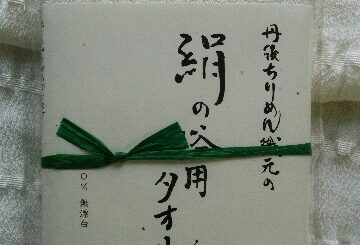 丹後ちりめん織元の
絹の浴用
タオル
0%